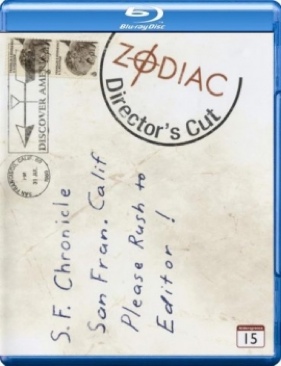 Blu-ray Disc
ZODIAC
Director's Cut
DISCOVER AMERICA
SAN FRANCISCO, CALIF
PM
31 JUL
S.F. Chronicle
San Fran. Calif
Please Rush to
Editor!
15